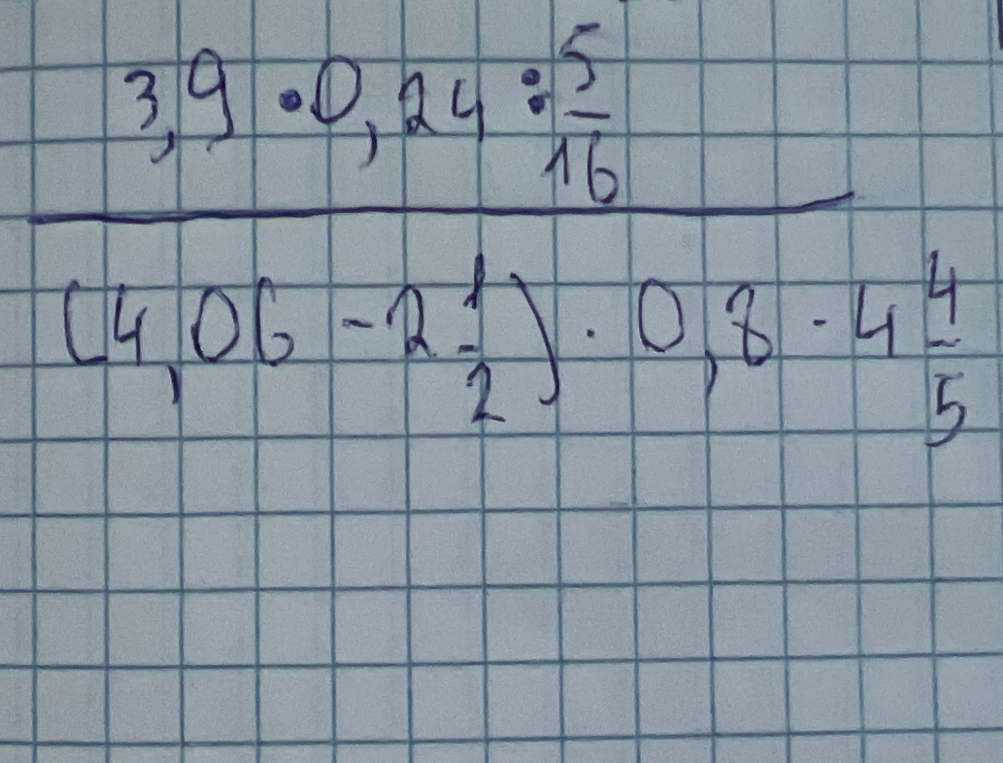 3,9 · 0,24 : 5/16
(4,06 - 2 1/2) · 0,8 · 4 4/5